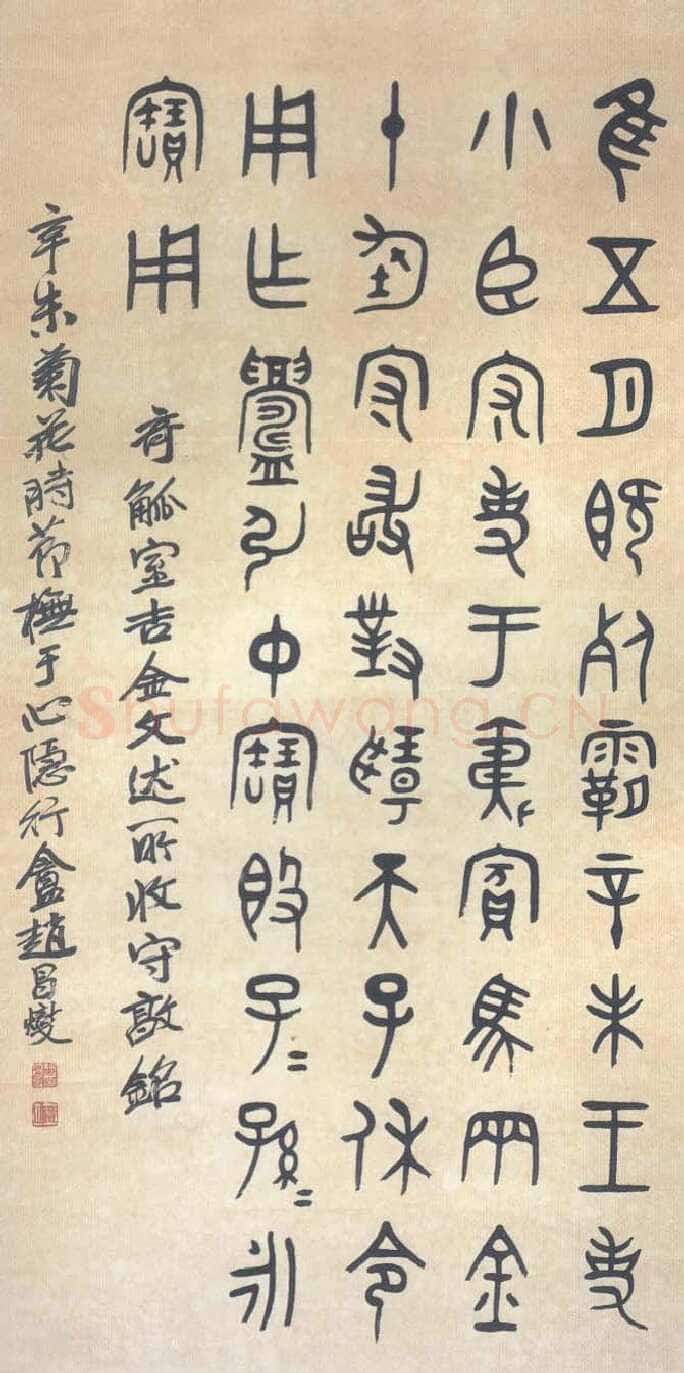 隹五月既死霸辛未王吏
小臣守吏于夷賓馬兩金
十鈞守敢對揚天子休令
用乍鑄引中寶𣪘子〓孫〓永
寶用
奇觚室吉金文述所收守敦銘
辛未菊花時節橅于心隱行盦趙昌燮
Shufawang.CN